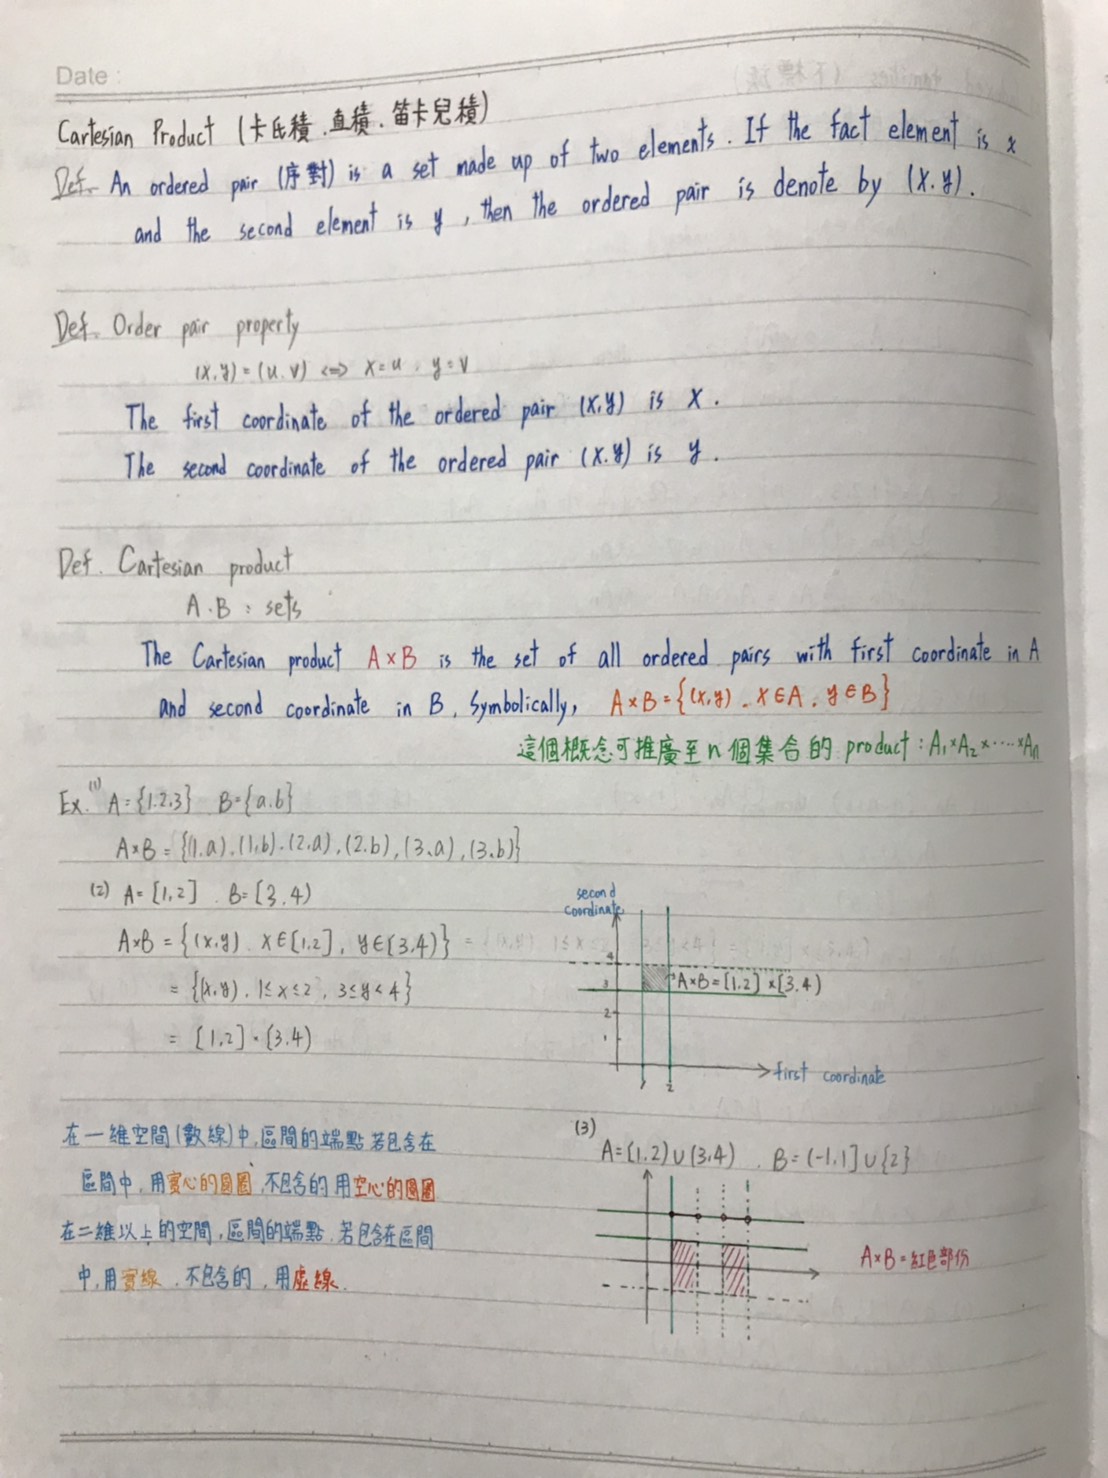 Date :
Cartesian Product (卡氏積、直積、笛卡兒積)
Def. An ordered pair (序對) is a set made up of two elements. If the fact element is x
and the second element is y, then the ordered pair is denote by (x.y).
Def. Order pair property
(x.y) = (u.v) <=> x=u . y=v
The first coordinate of the ordered pair (x,y) is x.
The second coordinate of the ordered pair (x.y) is y.
Def. Cartesian product
A.B : sets
The Cartesian product A×B is the set of all ordered pairs with first coordinate in A
and second coordinate in B. Symbolically, A×B={(x,y) . x∈A. y∈B}
這個概念可推廣至n個集合的 product : A₁×A₂×‧‧‧‧×Aₙ
Ex. (1) A={1.2.3} B={a.b}
A×B = {(1.a).(1.b).(2.a),(2.b),(3.a),(3.b)}
(2) A=[1,2] . B=[3.4)
A×B = {(x,y). x∈[1,2], y∈[3,4)}
= {(x,y). 1≤x≤2, 3≤y<4}
= [1,2]×[3.4)
second
coordinate
4
3
A×B=[1.2]×[3.4)
2
1
1
2
first coordinate
在一維空間(數線)中,區間的端點若包含在
區間中,用實心的圓圈,不包含的用空心的圓圈
在二維以上的空間,區間的端點.若包含在區間
中,用實線.不包含的,用虛線.
(3)
A=[1,2)∪(3,4) . B=(-1,1]∪{2}
A×B=紅色部份